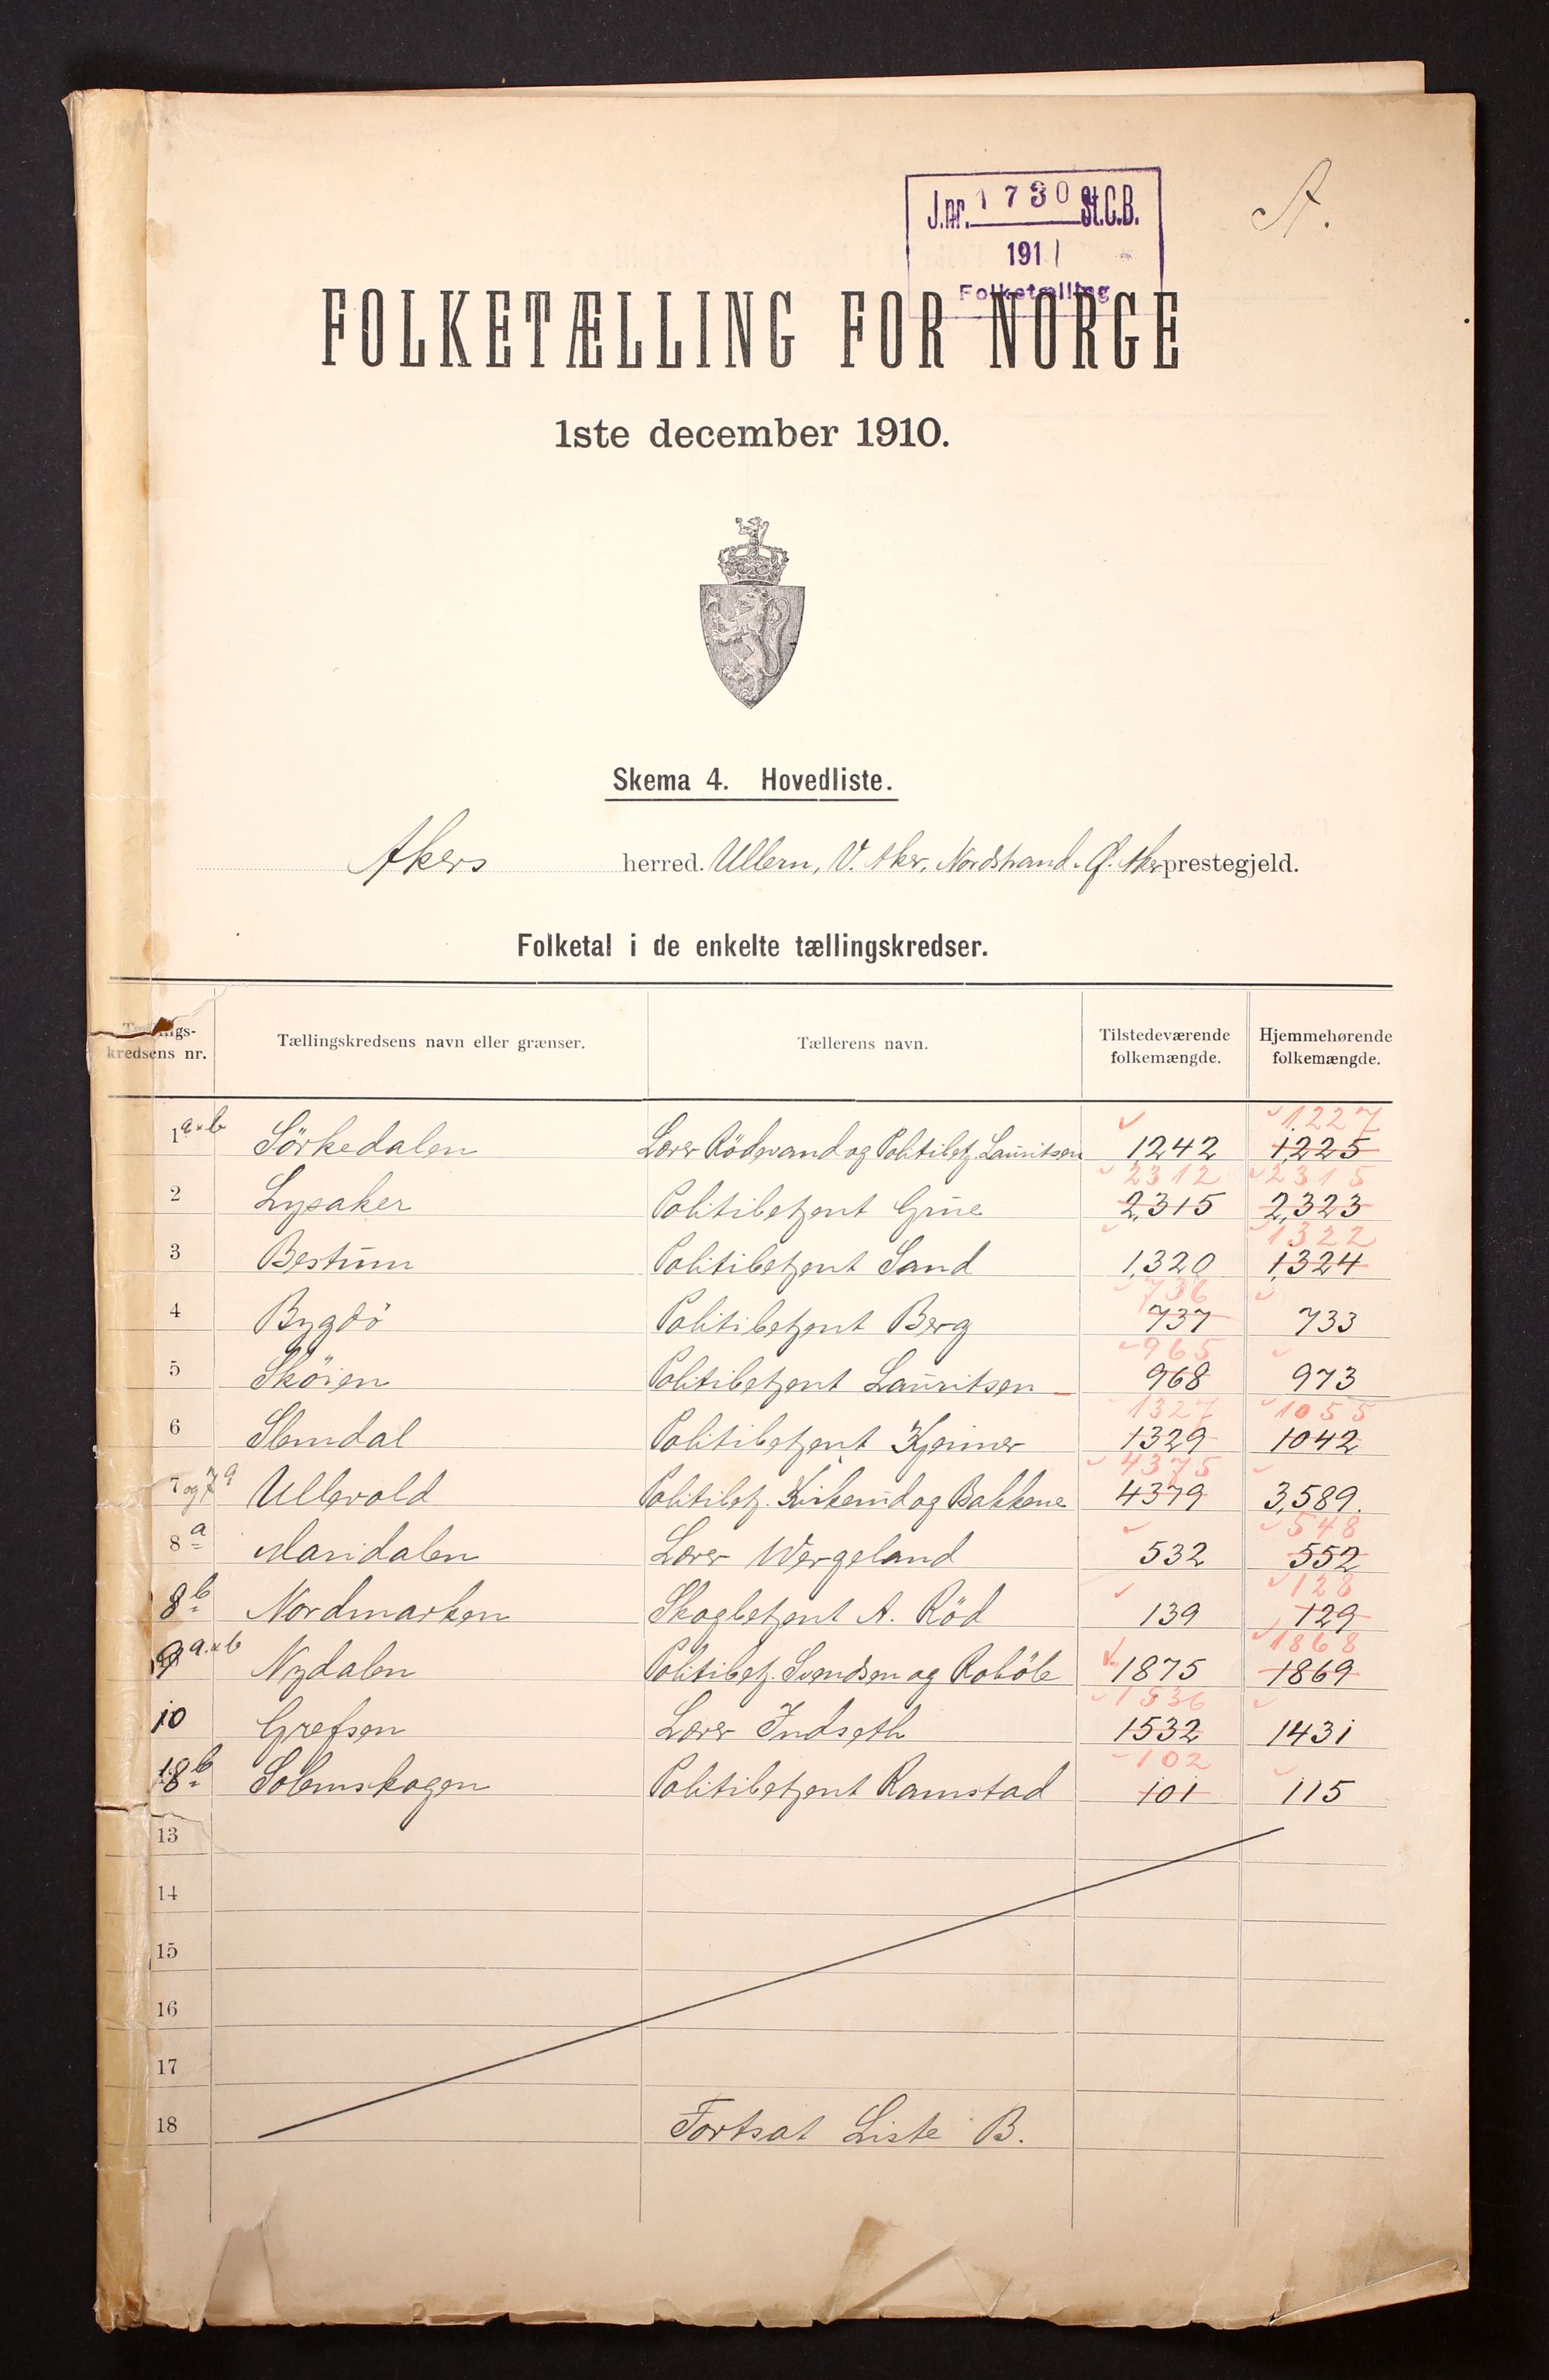 J.nr. 1730 St.C.B.
1911
Folketælling
A.
FOLKETÆLLING FOR NORGE
1ste december 1910.
Skema 4. Hovedliste.
Akers herred. Ullern, V. Aker, Nordstrand. Ø. Aker prestegjeld.
Folketal i de enkelte tællingskredser.
Tællings-kredsens nr. Tællingskredsens navn eller grænser. Tællerens navn. Tilstedeværende folkemængde. Hjemmehørende folkemængde.
1227
1 a×b Sörkedalen Lærer Rödevand og Politibetj. Lauritsen 1242 1,225
2312 2315
2 Lysaker Politibetjent Grue 2,315 2,323
1322
3 Bestum Politibetjent Sand 1,320 1,324
736
4 Bygdö Politibetjent Berg 737 733
965
5 Sköien Politibetjent Lauritsen 968 973
1327 1055
6 Slemdal Politibetjent 1329 1042
4375
7 og 7a Ullevold Politibetj. Kirkerud og Bakkene 4379 3,589.
548
8a Maridalen Lærer Wergeland 532 552
128
8b Nordmarken Skogbetjent A. Röd 139 129
1868
9 a.×b Nydalen Politibetj. Svendsen og Roböle 1875 1869
1536
10 Grefsen Lærer Indseth 1532 1431
102
18b Solemskogen Politibetjent Ramstad 101 115
13
14
15
16
17
18 Fortsat Liste B.